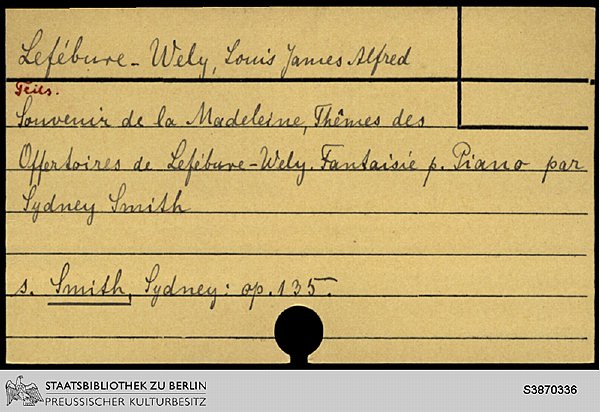 Lefébure-Wely, Louis James Alfred
Teils.
Souvenir de la Madeleine, Thêmes des
Offertoires de Lefébure-Wely. Fantaisie p. Piano par
Sydney Smith
s. Smith, Sydney: op. 135.
STAATSBIBLIOTHEK ZU BERLIN
PREUSSISCHER KULTURBESITZ
S3870336